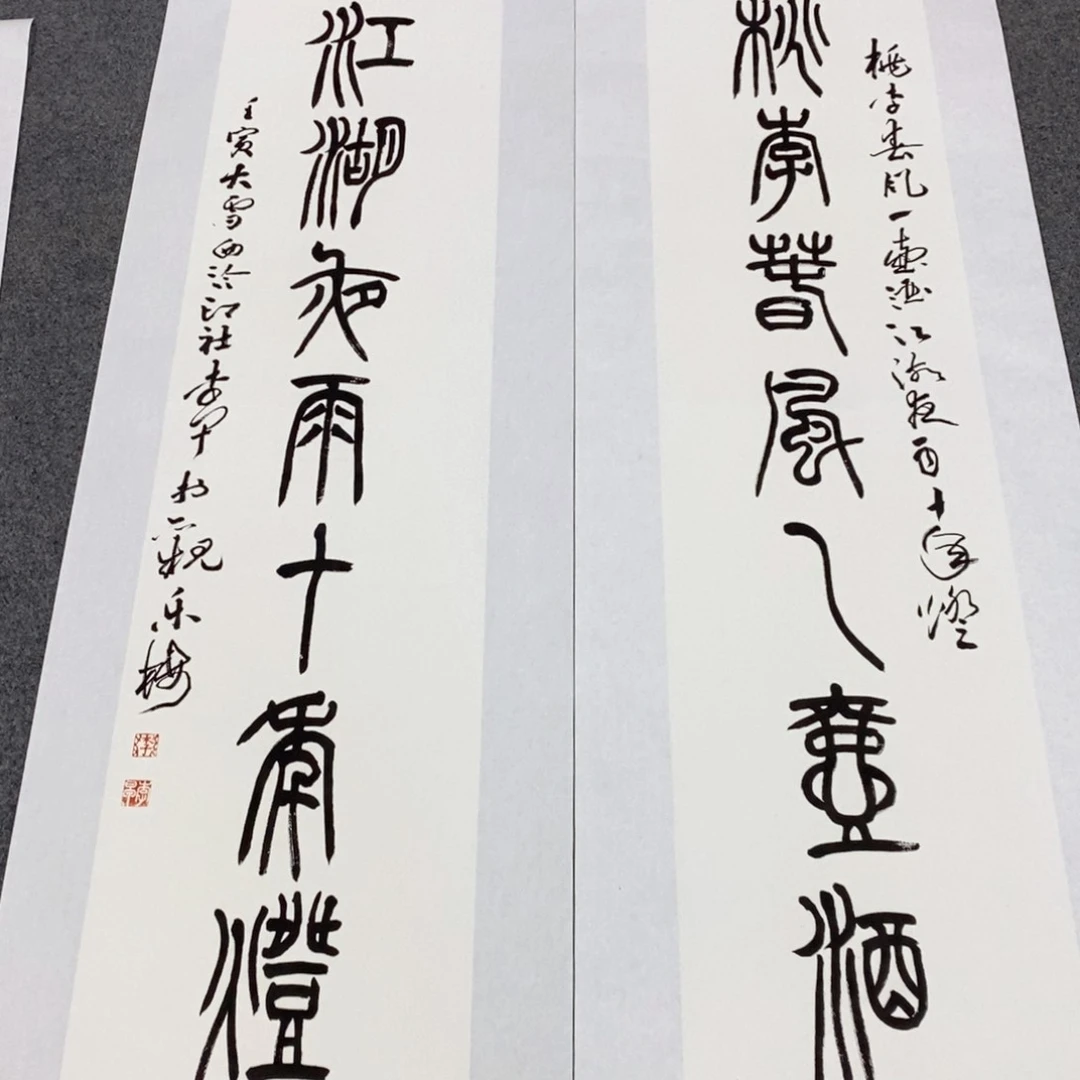 桃李春风一壶酒江湖夜雨十年燈
桃李春風一壺酒
江湖夜雨十年燈
壬寅大雪西泠印社李於觀乐